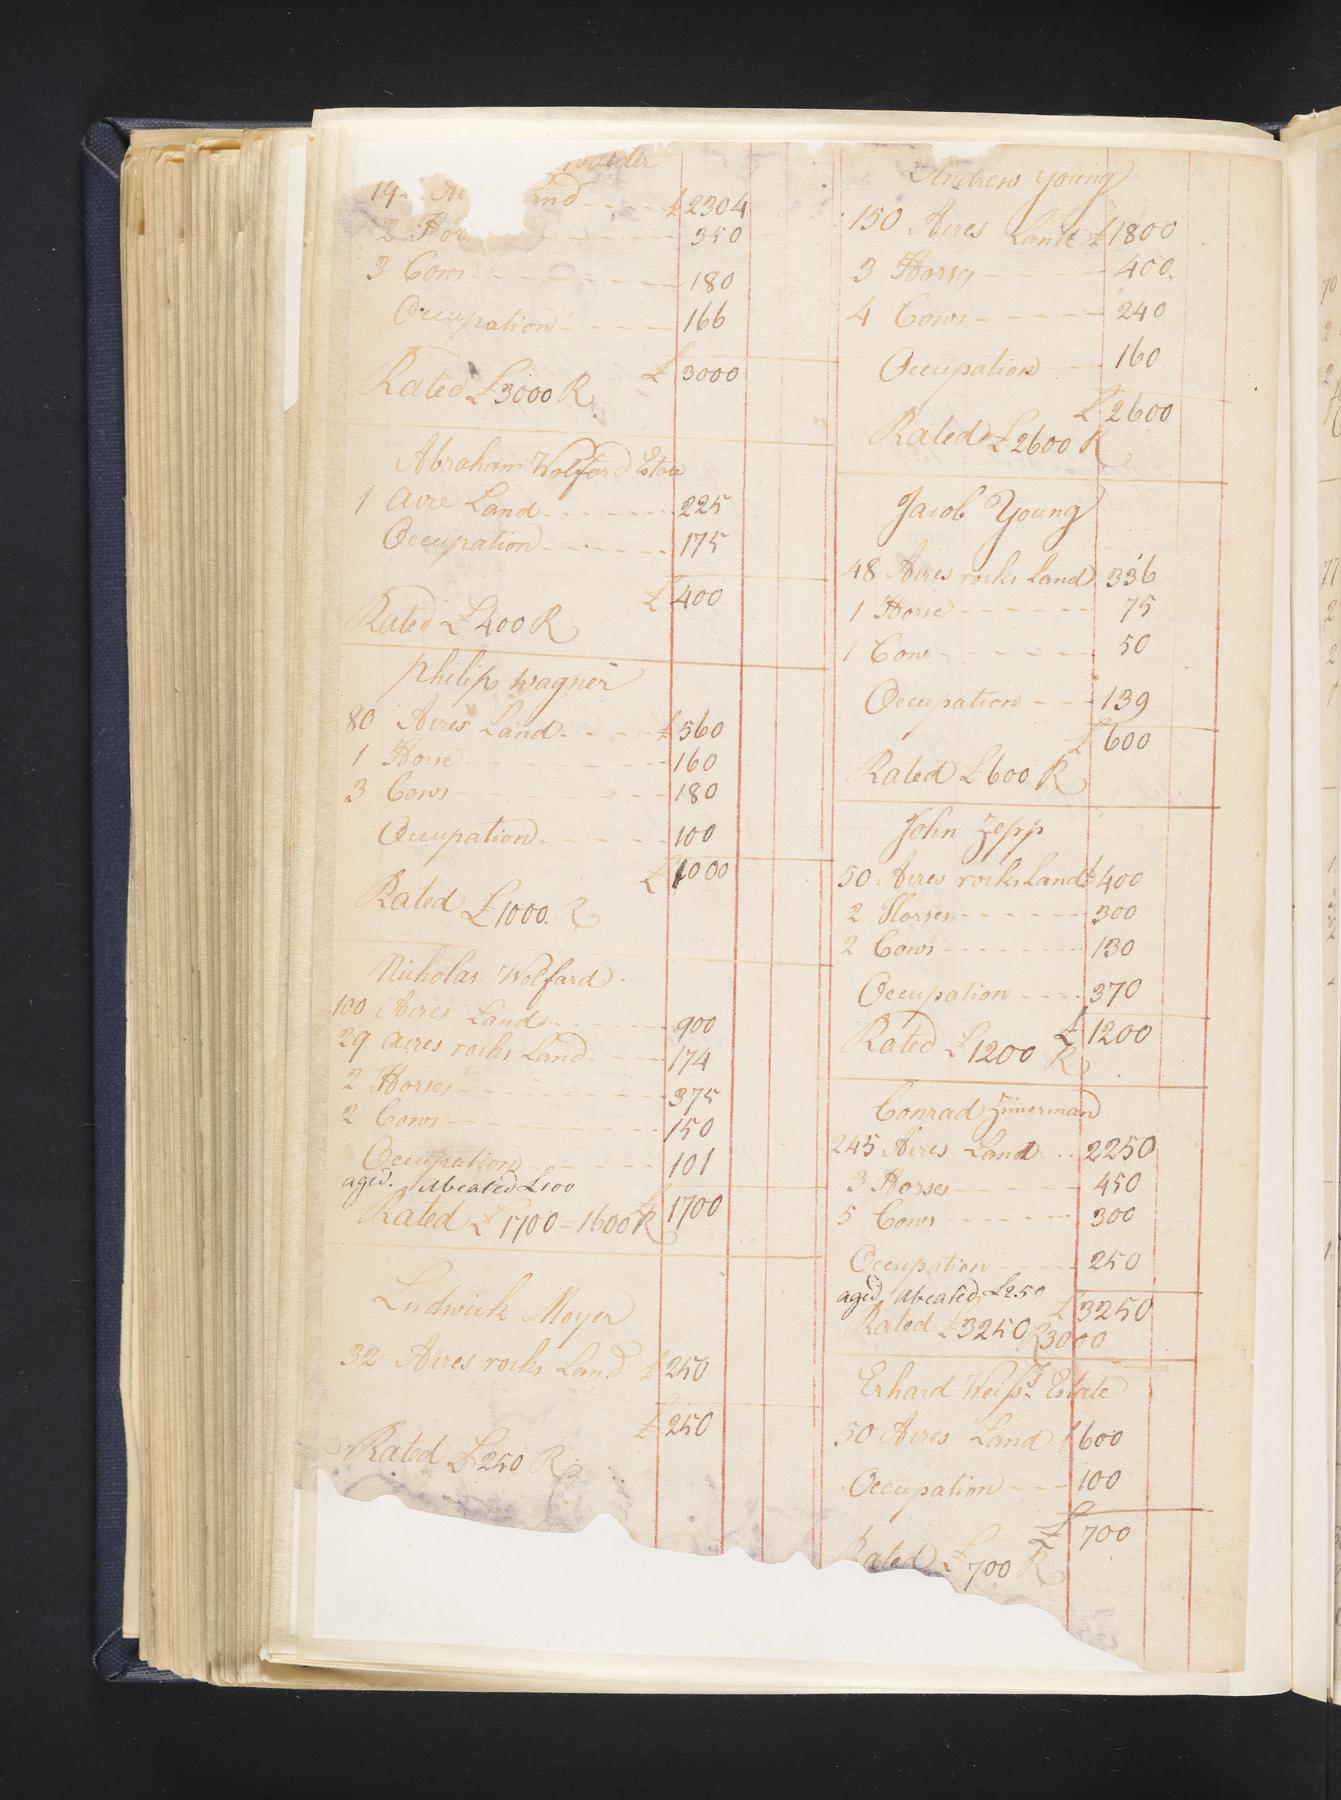 nd £ 2304
2 Hor 350
3 Cows 180
Occupation 166
£ 3000
Rated £3000 R
Abraham Wolfard Estate
1 Acre Land 225
Occupation 175
£ 400
Rated £400 R
Philip Wagner
80 Acres Land £ 560
1 Horse 160
3 Cows 180
Occupation 100
£ 1000
Rated £1000. R
Nicholas Wolfard
100 Acres Land 900
29 Acres rocks Land 174
2 Horses 375
2 Cows 150
Occupation 101
aged. Abeated £100
Rated £1700=1600 R 1700
Ludwick Moyer
32 Acres rocks Land £ 250
£ 250
Rated £250 R
Andrew Young
150 Acres Land £ 1800
3 Horses 400
4 Cows 240
Occupation 160
£ 2600
Rated £2600 R
Jacob Young
48 Acres rocks Land 336
1 Horse 75
1 Cow 50
Occupation 139
£ 600
Rated £600 R
John Zepp
50 Acres rocks Land £ 400
2 Horses 300
2 Cows 130
Occupation 370
£ 1200
Rated £1200 R
Conrad Zimerman
245 Acres Land 2250
3 Horses 450
5 Cows 300
Occupation 250
aged, Abeated £250
£ 3250
Rated £3250 R 3000
Erhard Weiss Estate
50 Acres Land £ 600
Occupation 100
£ 700
Rated £700 R